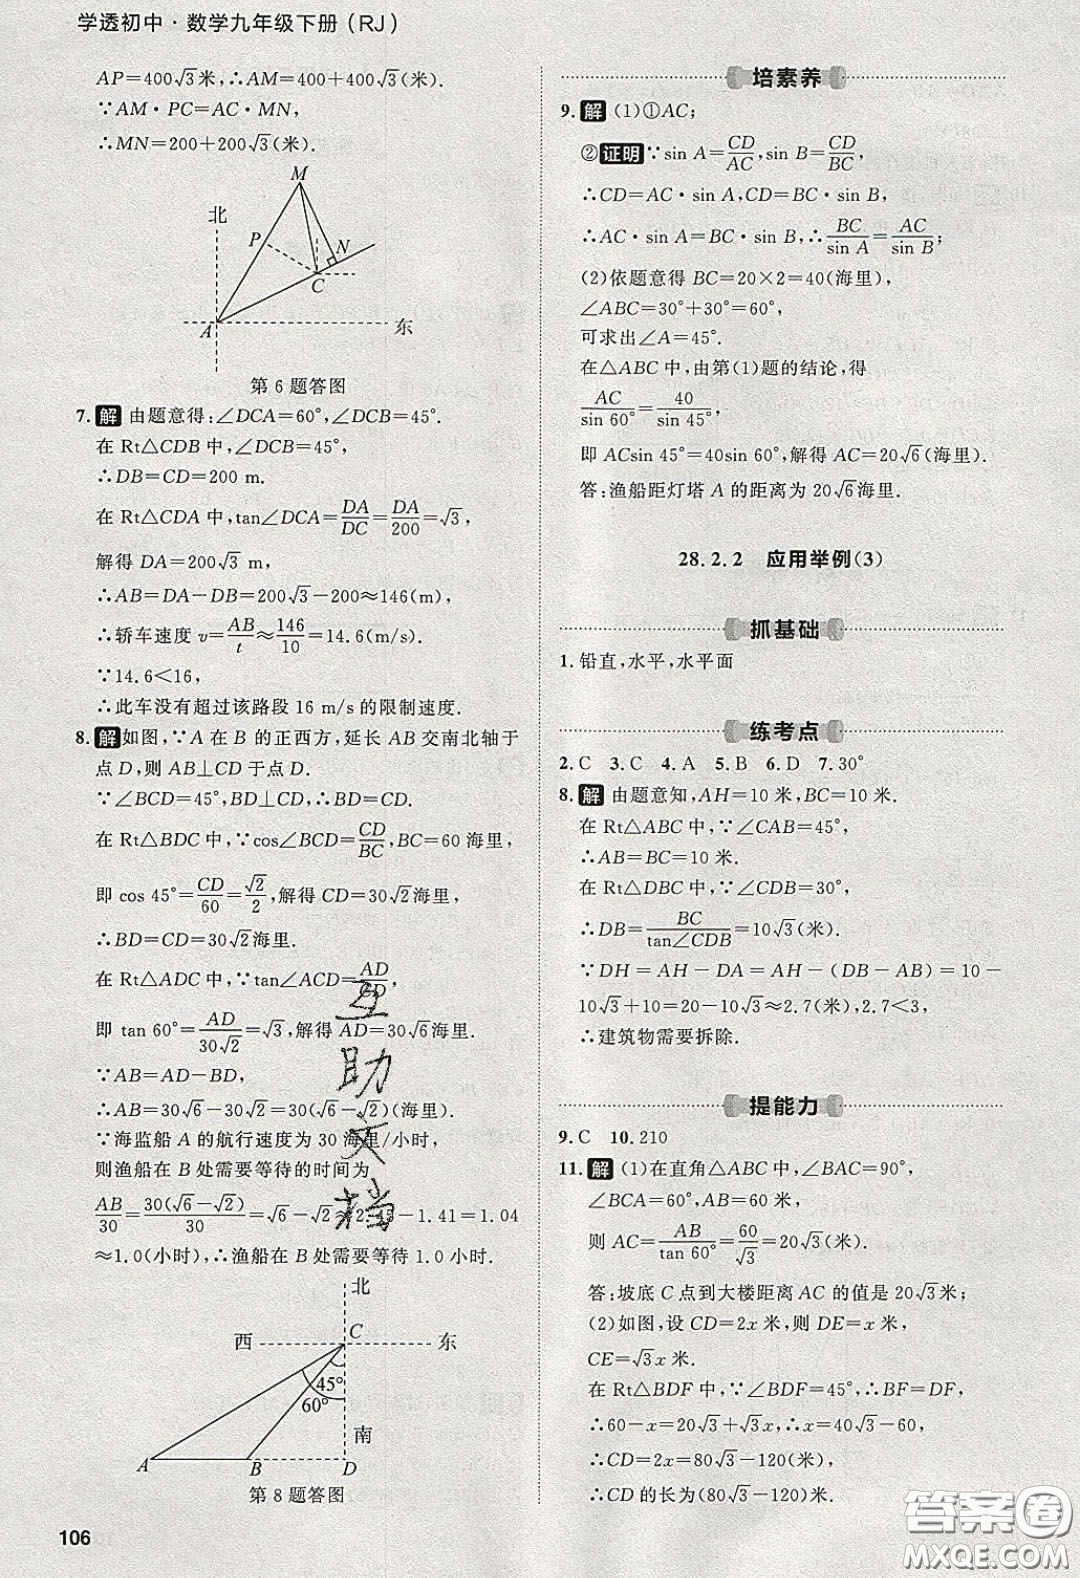 学透初中·数学九年级下册(RJ)
AP=400√3米,∴AM=400+400√3(米).
∵AM·PC=AC·MN,
∴MN=200+200√3(米).
M
北
P
N
C
A
东
第6题答图
7.解 由题意得:∠DCA=60°,∠DCB=45°.
在 Rt△CDB 中,∠DCB=45°,
∴DB=CD=200 m.
在 Rt△CDA 中,tan∠DCA=DA/DC=DA/200=√3,
解得 DA=200√3 m,
∴AB=DA−DB=200√3−200≈146(m),
∴轿车速度 v=AB/t≈146/10=14.6(m/s).
∵14.6<16,
∴此车没有超过该路段 16 m/s的限制速度.
8.解如图,∵A 在 B 的正西方,延长 AB 交南北轴于
点 D,则 AB⊥CD 于点 D.
∵∠BCD=45°,BD⊥CD,∴BD=CD.
在 Rt△BDC 中,∵cos∠BCD=CD/BC,BC=60 海里,
即 cos 45°=CD/60=√2/2,解得 CD=30√2海里,
∴BD=CD=30√2海里.
在 Rt△ADC 中,∵tan∠ACD=AD/CD,
即 tan 60°=AD/30√2=√3,解得 AD=30√6海里.
∵AB=AD−BD,
∴AB=30√6−30√2=30(√6−√2)(海里).
∵海监船 A 的航行速度为 30 海里/小时,
则渔船在 B 处需要等待的时间为
AB/30=30(√6−√2)/30=√6−√2≈2.45−1.41=1.04
≈1.0(小时),∴渔船在 B 处需要等待 1.0 小时.
互助文档
北
西
C
东
45°
60°
南
A
B
D
第8题答图
106
培素养
9.解 (1)①AC;
②证明∵sin A=CD/AC,sin B=CD/BC,
∴CD=AC·sin A,CD=BC·sin B,
∴AC·sin A=BC·sin B,∴BC/sin A=AC/sin B;
(2)依题意得 BC=20×2=40(海里),
∠ABC=30°+30°=60°,
可求出∠A=45°.
在△ABC 中,由第(1)题的结论,得
AC/sin 60°=40/sin 45°,
即 ACsin 45°=40sin 60°,解得 AC=20√6(海里).
答:渔船距灯塔 A 的距离为 20√6海里.
28.2.2 应用举例(3)
抓基础
1.铅直,水平,水平面
练考点
2.C 3.C 4.A 5.B 6.D 7.30°
8.解 由题意知,AH=10 米,BC=10 米.
在 Rt△ABC 中,∵∠CAB=45°,
∴AB=BC=10 米.
在 Rt△DBC 中,∵∠CDB=30°,
∴DB=BC/tan∠CDB=10√3(米).
∵DH=AH−DA=AH−(DB−AB)=10−
10√3+10=20−10√3≈2.7(米),2.7<3,
∴建筑物需要拆除.
提能力
9.C 10.210
11.解 (1)在直角△ABC 中,∠BAC=90°,
∠BCA=60°,AB=60 米,
则 AC=AB/tan 60°=60/√3=20√3(米).
答:坡底 C 点到大楼距离 AC 的值是 20√3米;
(2)如图,设 CD=2x 米,则 DE=x 米,
CE=√3x 米.
在 Rt△BDF 中,∵∠BDF=45°,∴BF=DF,
∴60−x=20√3+√3x,∴x=40√3−60,
∴CD=2x=80√3−120(米),
∴CD 的长为(80√3−120)米.
答案圈
MXQE.COM